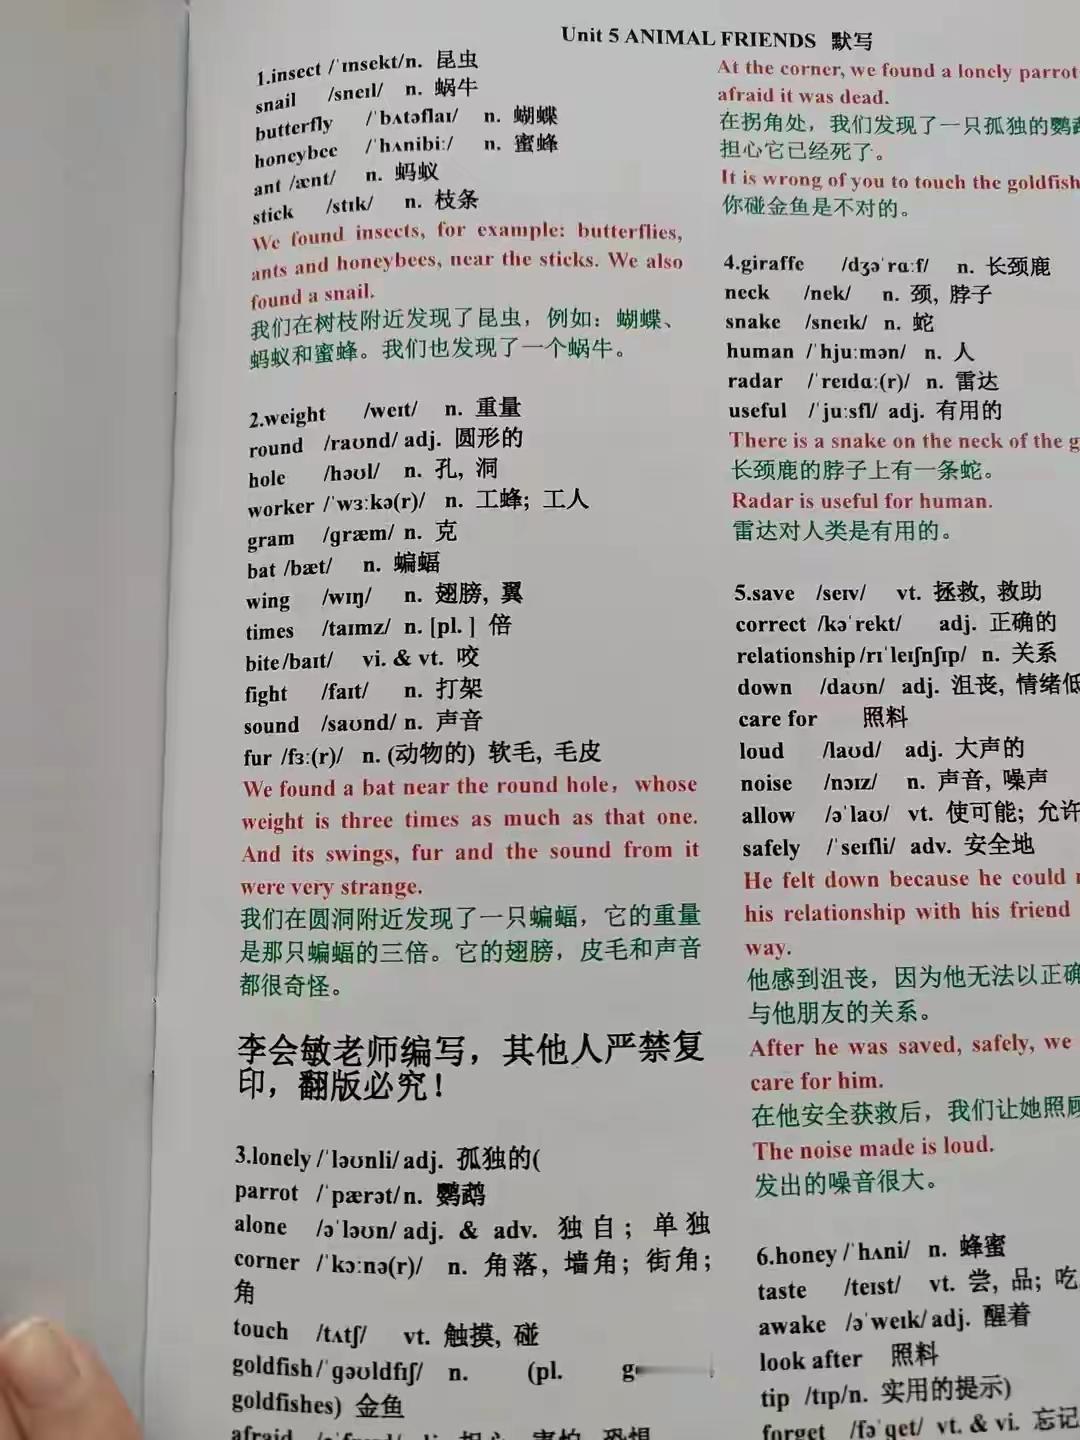 Unit 5 ANIMAL FRIENDS 默写
1.insect /ˈɪnsekt/n. 昆虫
snail /sneɪl/ n. 蜗牛
butterfly /ˈbʌtəflaɪ/ n. 蝴蝶
honeybee /ˈhʌnibiː/ n. 蜜蜂
ant /ænt/ n. 蚂蚁
stick /stɪk/ n. 枝条
We found insects, for example: butterflies,
ants and honeybees, near the sticks. We also
found a snail.
我们在树枝附近发现了昆虫，例如：蝴蝶、
蚂蚁和蜜蜂。我们也发现了一个蜗牛。
2.weight /weɪt/ n. 重量
round /raʊnd/ adj. 圆形的
hole /həʊl/ n. 孔, 洞
worker /ˈwɜːkə(r)/ n. 工蜂; 工人
gram /ɡræm/ n. 克
bat /bæt/ n. 蝙蝠
wing /wɪŋ/ n. 翅膀, 翼
times /taɪmz/ n. [pl. ] 倍
bite /baɪt/ vi. & vt. 咬
fight /faɪt/ n. 打架
sound /saʊnd/ n. 声音
fur /fɜː(r)/ n. (动物的) 软毛, 毛皮
We found a bat near the round hole, whose
weight is three times as much as that one.
And its swings, fur and the sound from it
were very strange.
我们在圆洞附近发现了一只蝙蝠，它的重量
是那只蝙蝠的三倍。它的翅膀，皮毛和声音
都很奇怪。
李会敏老师编写，其他人严禁复
印，翻版必究！
3.lonely /ˈləʊnli/ adj. 孤独的(
parrot /ˈpærət/ n. 鹦鹉
alone /əˈləʊn/ adj. & adv. 独自; 单独
corner /ˈkɔːnə(r)/ n. 角落, 墙角; 街角;
角
touch /tʌtʃ/ vt. 触摸, 碰
goldfish /ˈɡəʊldfɪʃ/ n. (pl. g
goldfishes) 金鱼
afraid 担心, 害怕, 恐惧
At the corner, we found a lonely parrot
afraid it was dead.
在拐角处，我们发现了一只孤独的鹦鹉
担心它已经死了。
It is wrong of you to touch the goldfish
你碰金鱼是不对的。
4.giraffe /dʒəˈrɑːf/ n. 长颈鹿
neck /nek/ n. 颈, 脖子
snake /sneɪk/ n. 蛇
human /ˈhjuːmən/ n. 人
radar /ˈreɪdɑː(r)/ n. 雷达
useful /ˈjuːsfl/ adj. 有用的
There is a snake on the neck of the g
长颈鹿的脖子上有一条蛇。
Radar is useful for human.
雷达对人类是有用的。
5.save /seɪv/ vt. 拯救, 救助
correct /kəˈrekt/ adj. 正确的
relationship /rɪˈleɪʃnʃɪp/ n. 关系
down /daʊn/ adj. 沮丧, 情绪低
care for 照料
loud /laʊd/ adj. 大声的
noise /nɔɪz/ n. 声音, 噪声
allow /əˈlaʊ/ vt. 使可能; 允许
safely /ˈseɪfli/ adv. 安全地
He felt down because he could
his relationship with his friend
way.
他感到沮丧，因为他无法以正确
与他朋友的关系。
After he was saved, safely, we
care for him.
在他安全获救后，我们让她照顾
The noise made is loud.
发出的噪音很大。
6.honey /ˈhʌni/ n. 蜂蜜
taste /teɪst/ vt. 尝, 品; 吃
awake /əˈweɪk/ adj. 醒着
look after 照料
tip /tɪp/n. 实用的提示)
forget /fəˈɡet/ vt. & vi. 忘记